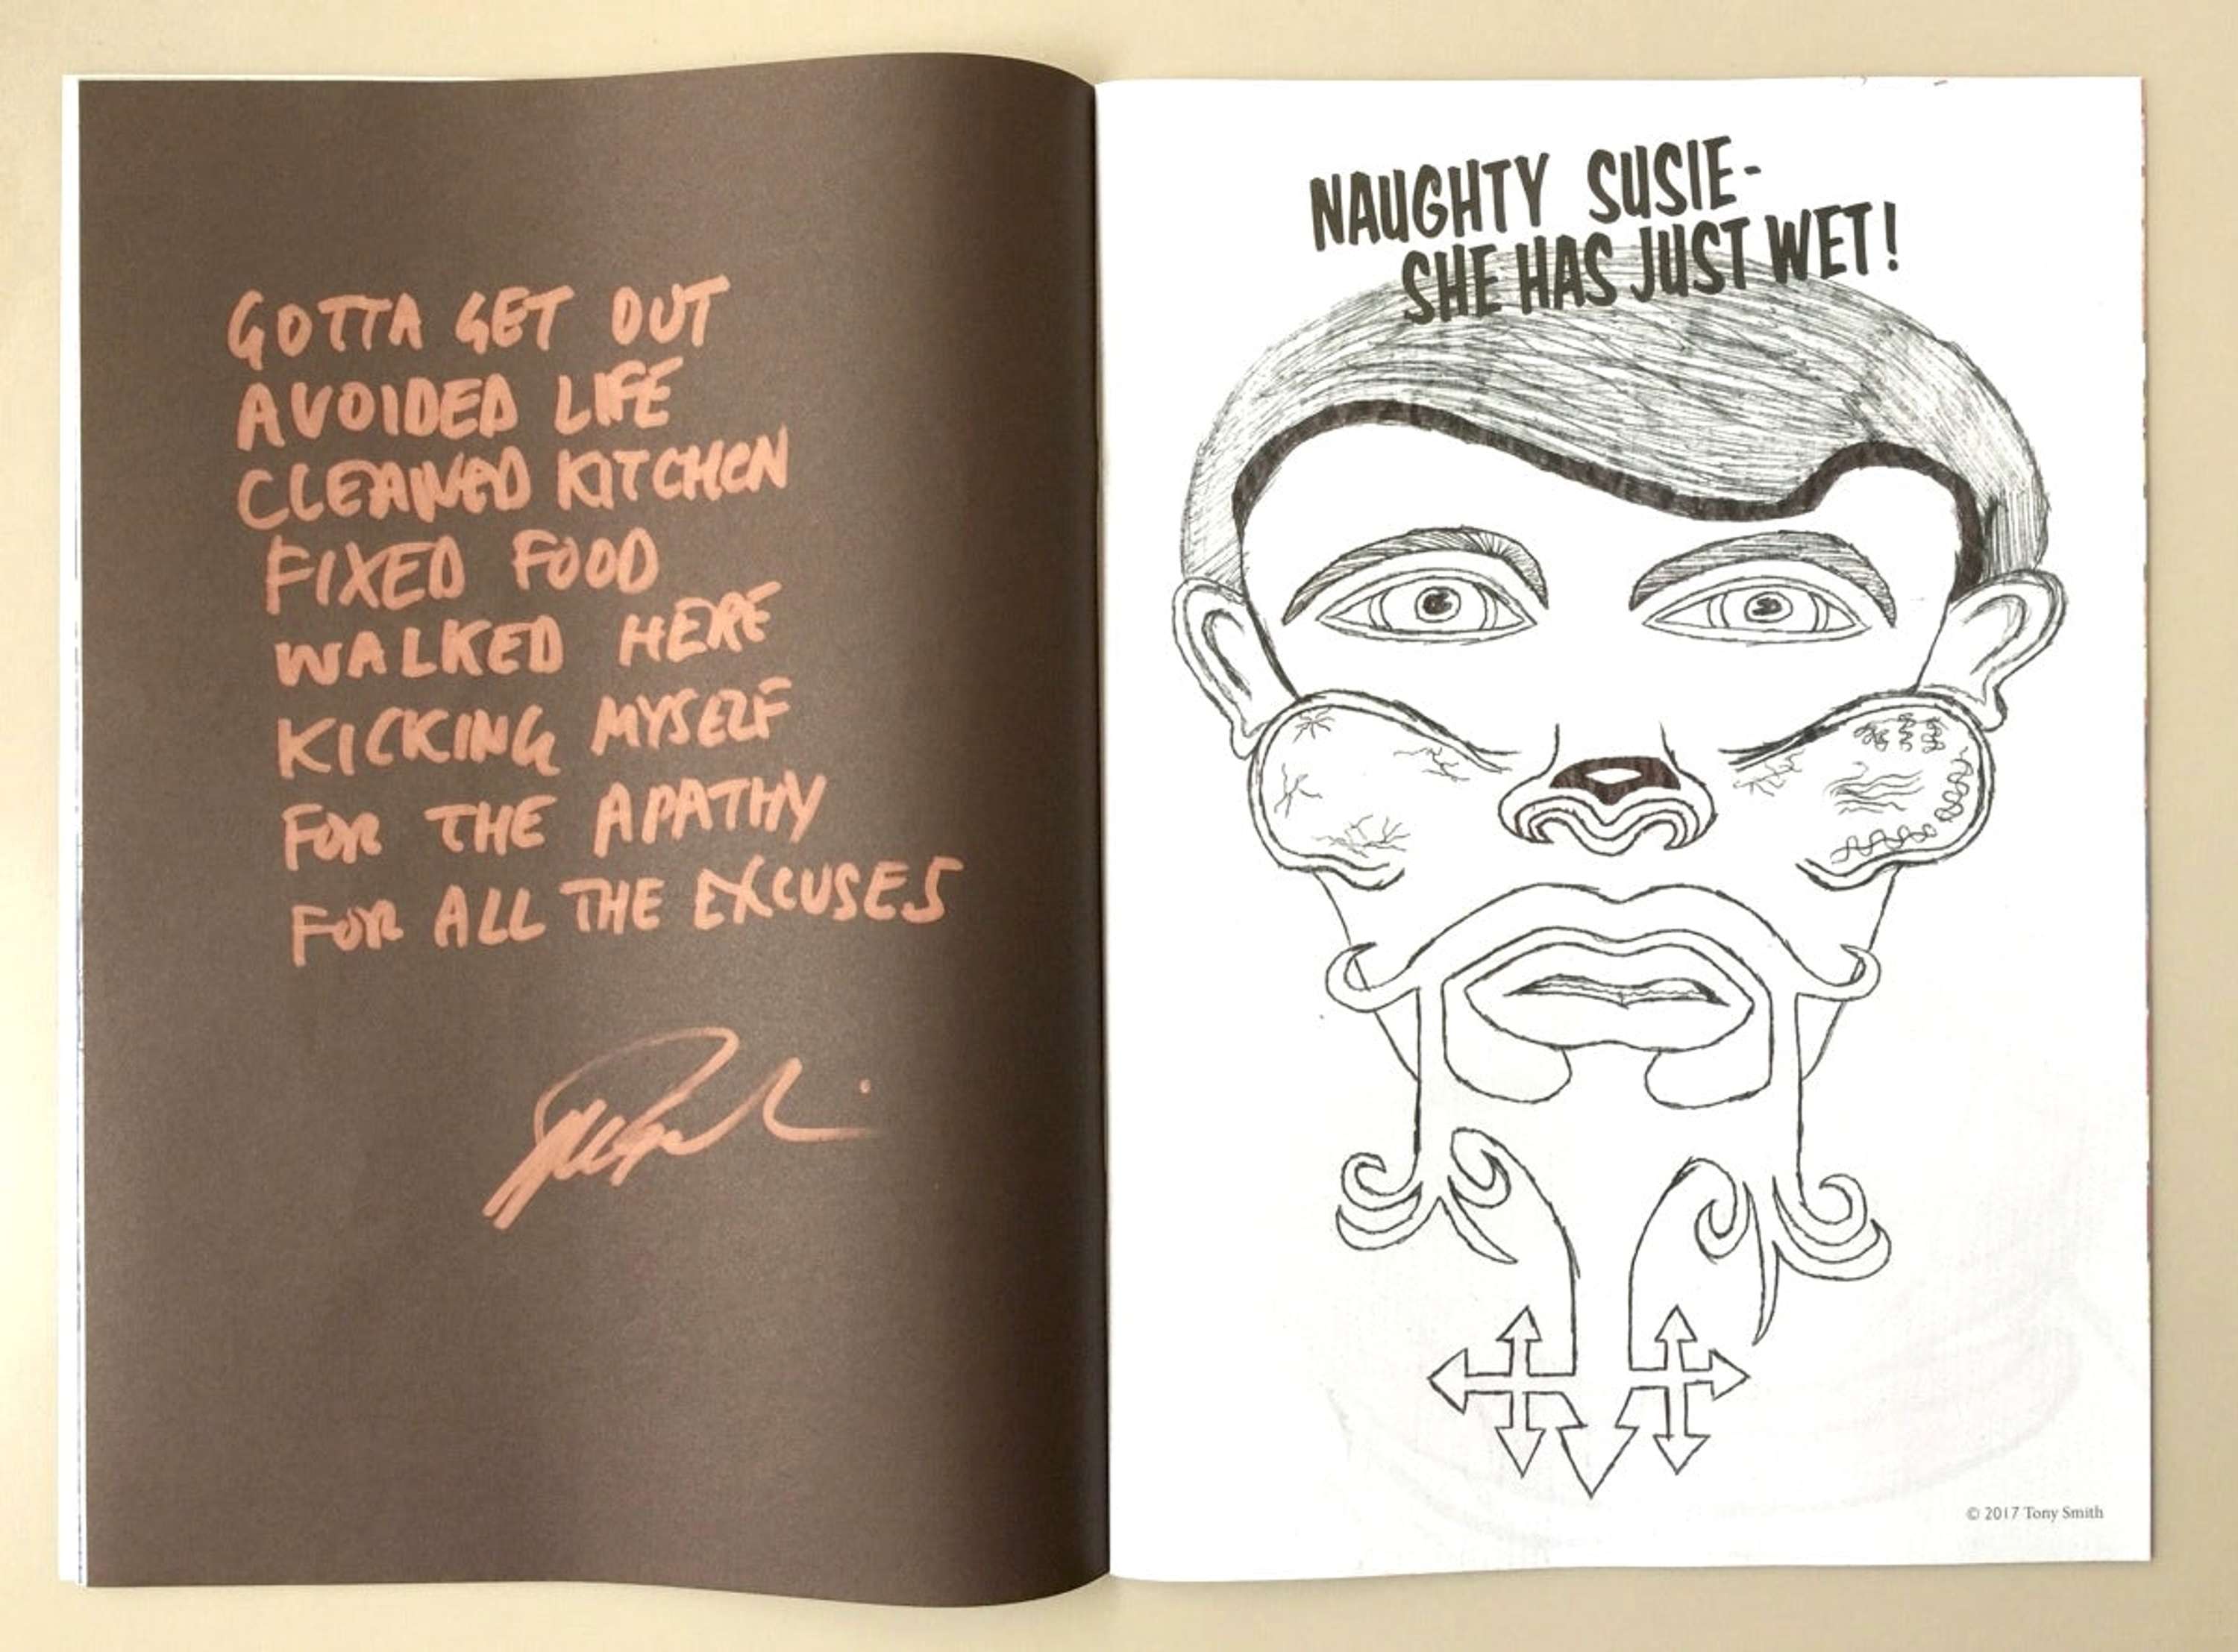 GOTTA GET OUT
AVOIDED LIFE
CLEANED KITCHEN
FIXED FOOD
WALKED HERE
KICKING MYSELF
FOR THE APATHY
FOR ALL THE EXCUSES
NAUGHTY SUSIE-
SHE HAS JUST WET!
© 2017 Tony Smith